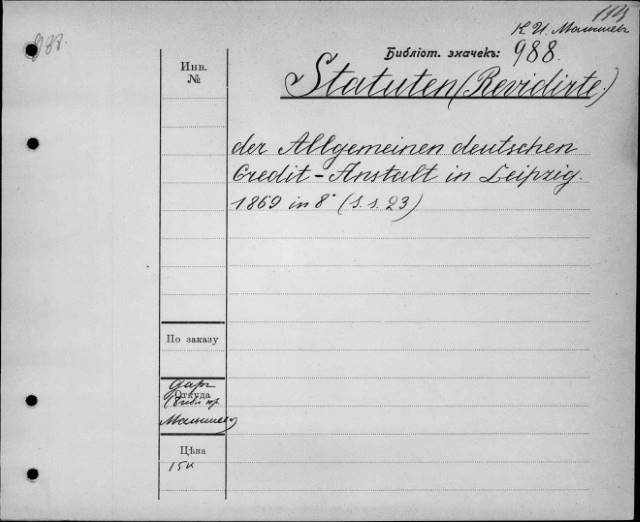 114
К. И. Малышевъ
988.
Библіот. значекъ: 988.
Инв.
№
Statuten (Revidirte.)
der Allgemeinen deutschen
Credit-Anstalt in Leipzig.
1869 in 8° (S. s. 23)
По заказу
Даръ
Откуда
Малышева
Цѣна
15 к